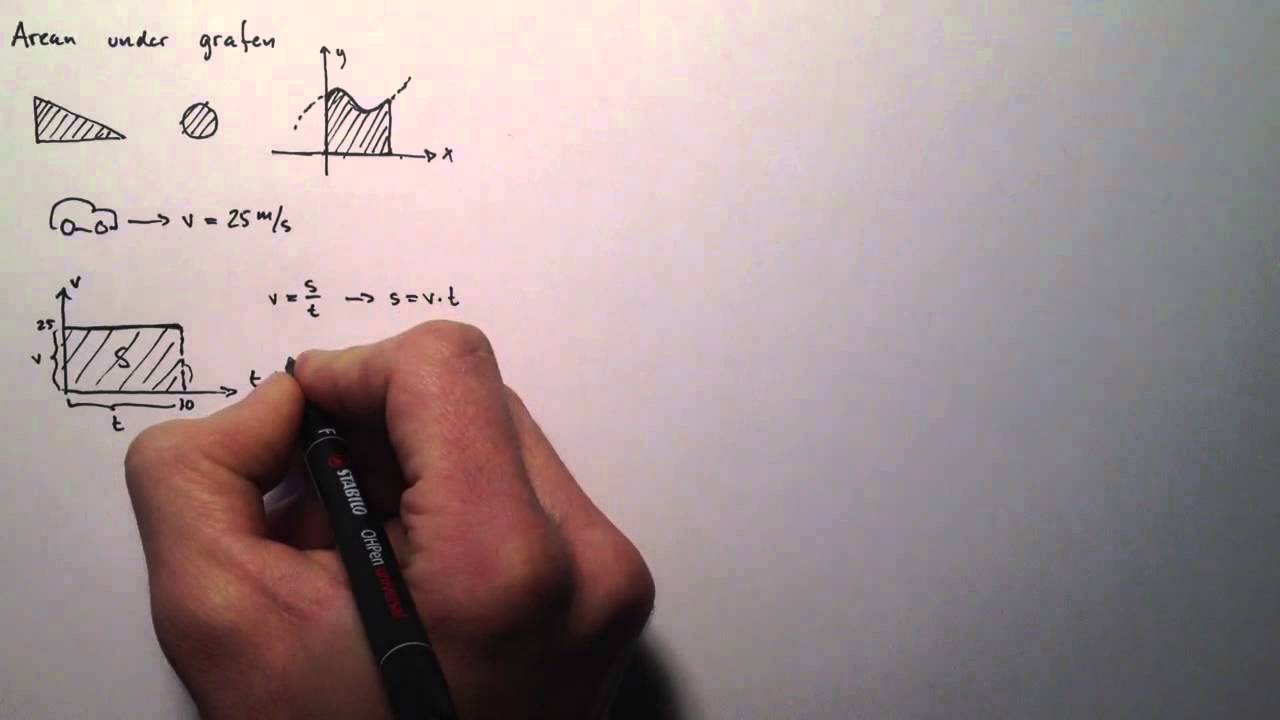 Arean under grafen
y
x
v = 25 m/s
v
v = s/t → s = v·t
25
v
S
t
10
t
F
STABILO OHPen universal